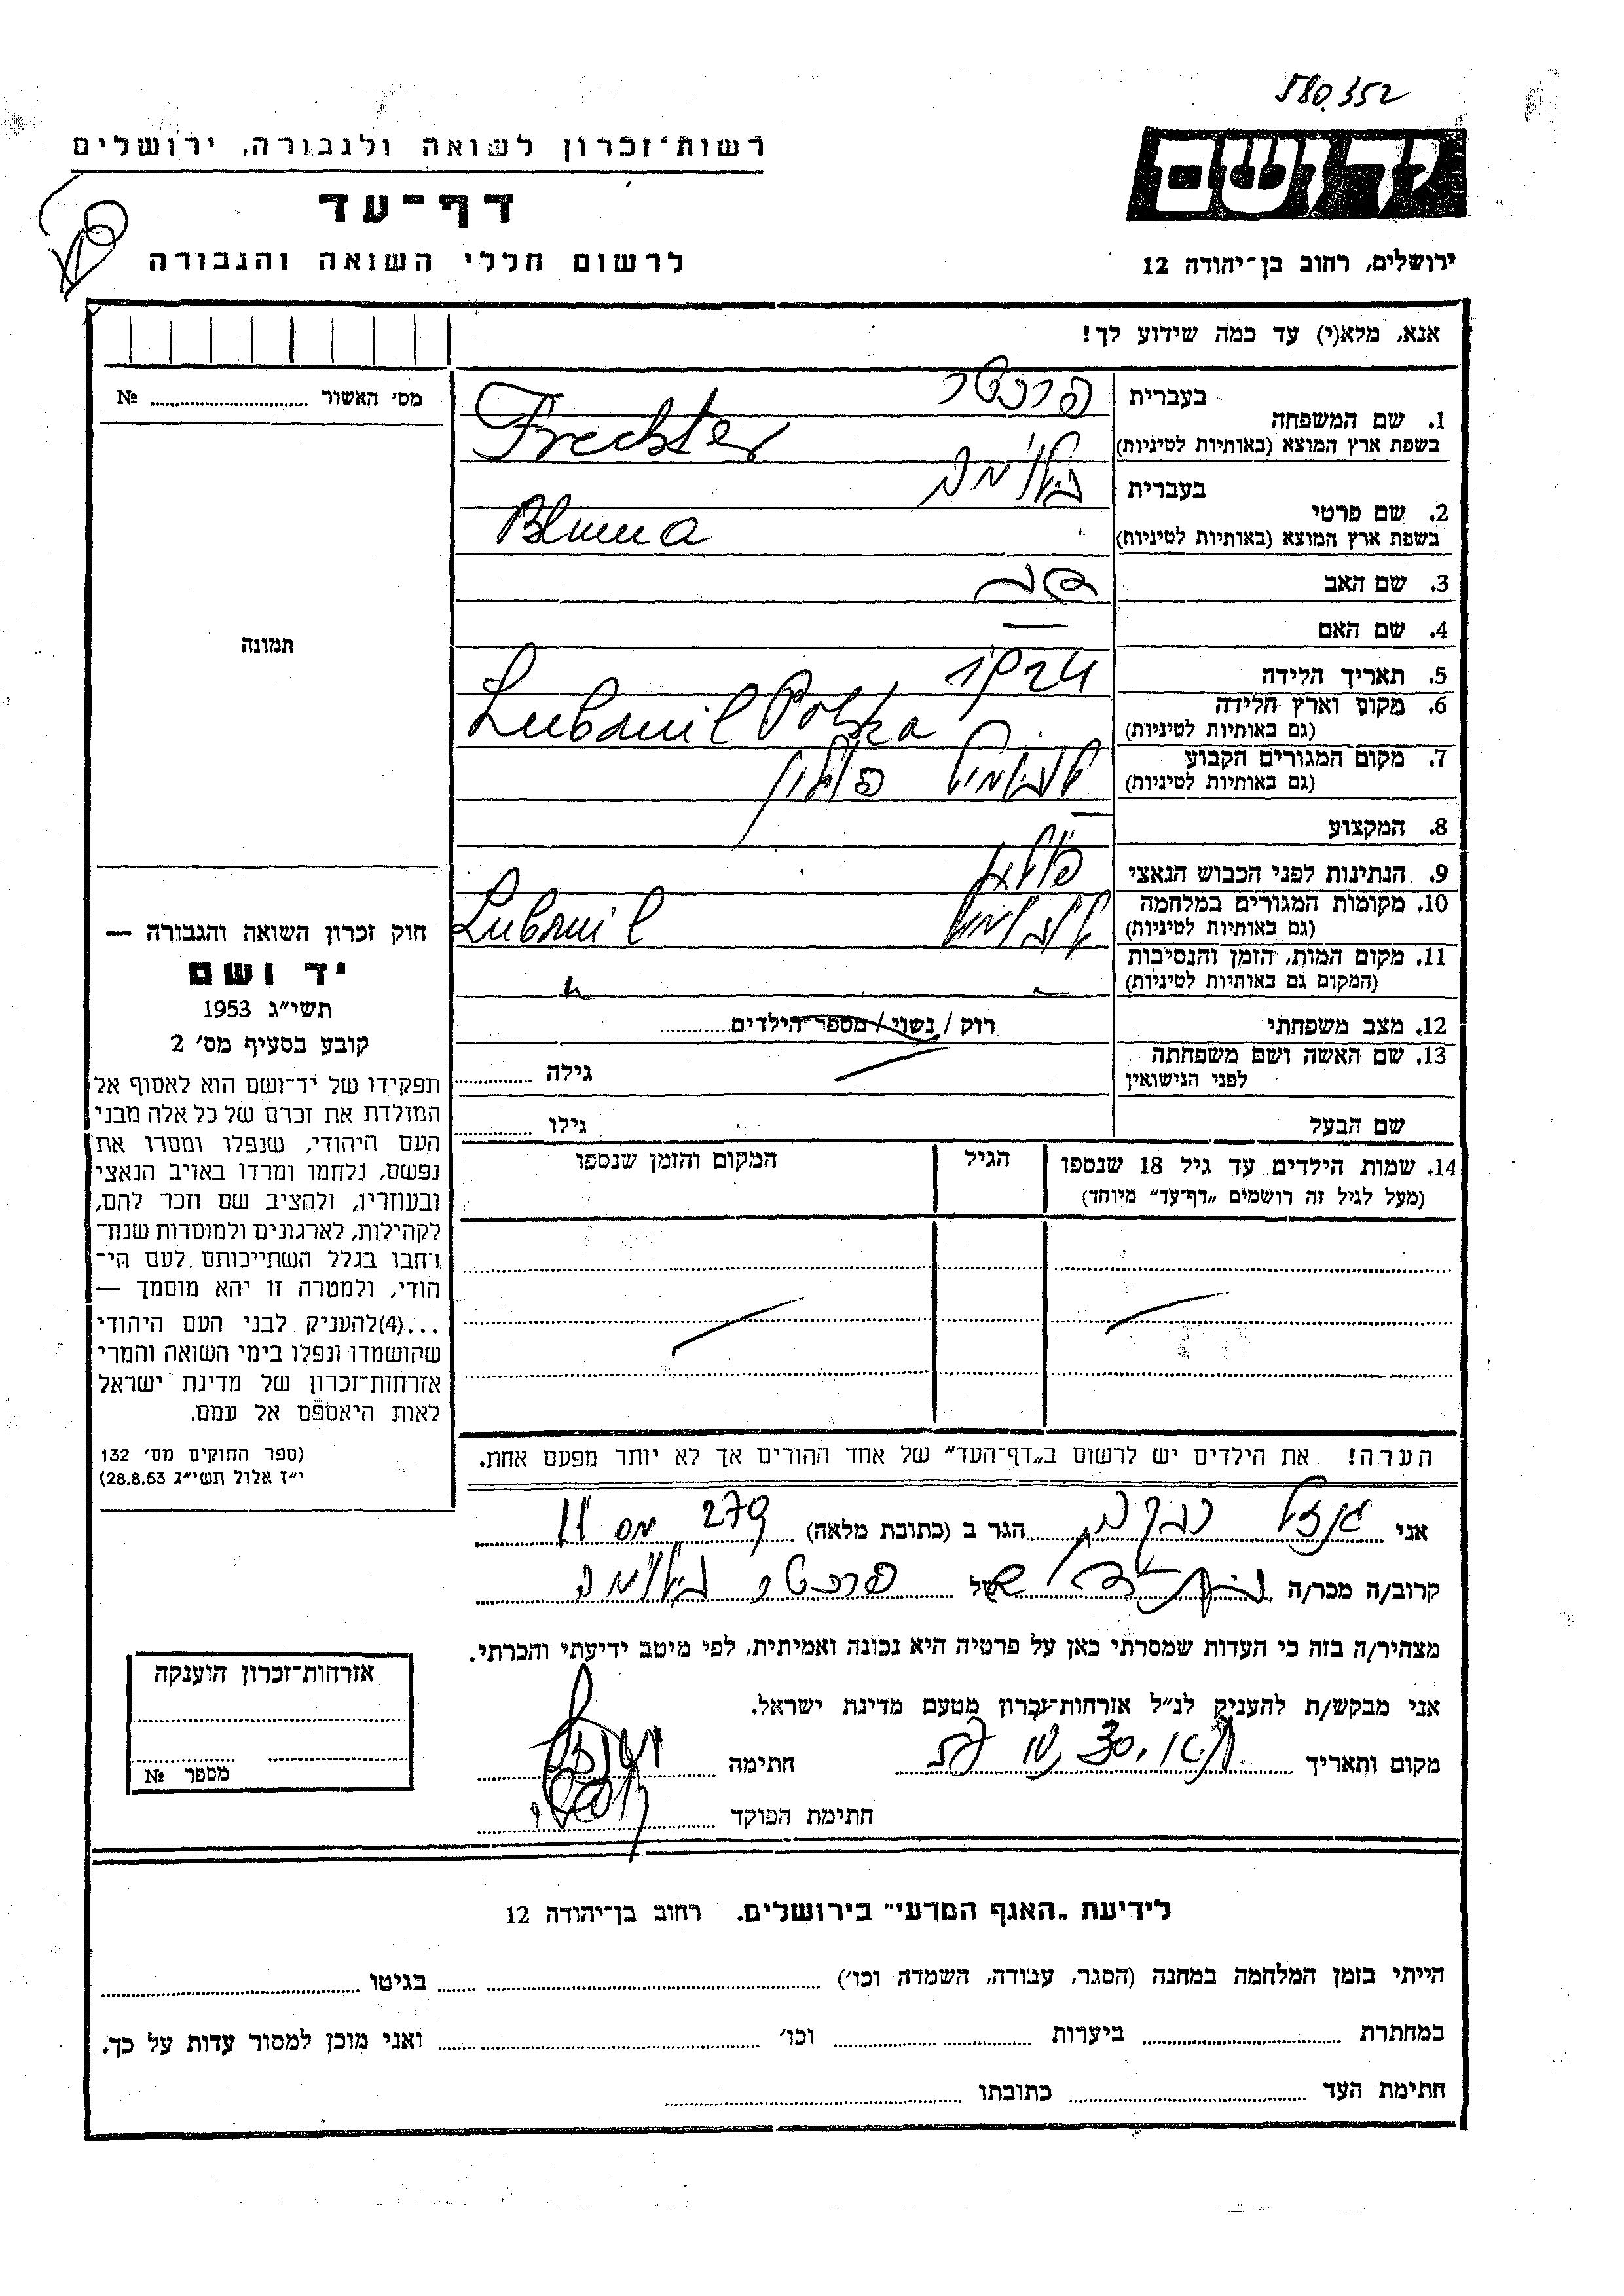 580.352
יד ושם
רשות־זכרון לשואה ולגבורה, ירושלים
דף־עד
לרשום חללי השואה והגבורה
ירושלים, רחוב בן־יהודה 12
אנא, מלא(י) עד כמה שידוע לך!
מס׳ האשור № ........
תמונה
1. שם המשפחה
בעברית
פרכטר
בשפת ארץ המוצא (באותיות לטיניות)
Frechter
2. שם פרטי
בעברית
בלומה
בשפת ארץ המוצא (באותיות לטיניות)
Bluma
3. שם האב
4. שם האם
—
5. תאריך הלידה
6. מקום וארץ הלידה
(גם באותיות לטיניות)
Lubomil Polska
7. מקום המגורים הקבוע
(גם באותיות לטיניות)
לובומיל פולין
8. המקצוע
—
9. הנתינות לפני הכבוש הנאצי
10. מקומות המגורים במלחמה
(גם באותיות לטיניות)
לובומיל
Lubomil
11. מקום המות, הזמן והנסיבות
(המקום גם באותיות לטיניות)
12. מצב משפחתי
רוק / נשוי / מספר הילדים........
13. שם האשה ושם משפחתה
לפני הנישואין
גילה ........
שם הבעל
גילו ........
14. שמות הילדים עד גיל 18 שנספו
(מעל לגיל זה רושמים „דף־עד״ מיוחד)
הגיל
המקום והזמן שנספו
חוק זכרון השואה והגבורה —
יד ושם
תשי״ג 1953
קובע בסעיף מס׳ 2
תפקידו של יד־ושם הוא לאסוף אל
המולדת את זכרם של כל אלה מבני
העם היהודי, שנפלו ומסרו את
נפשם, נלחמו ומרדו באויב הנאצי
ובעוזריו, ולהציב שם וזכר להם,
לקהילות, לארגונים ולמוסדות שנח־
רחבו בגלל השתייכותם לעם הי־
הודי, ולמטרה זו יהא מוסמך —
...(4)להעניק לבני העם היהודי
שהושמדו ונפלו בימי השואה והמרי
אזרחות־זכרון של מדינת ישראל
לאות היאספם אל עמם.
(ספר החוקים מס׳ 132
י״ז אלול תשי״ג 28.8.53)
הערה! את הילדים יש לרשום ב„דף־העד״ של אחד ההורים אך לא יותר מפעם אחת.
אני הגר ב (כתובת מלאה) 279 מס 11
קרוב/ה מכר/ה של פרכטר בלומה
מצהיר/ה בזה כי העדות שמסרתי כאן על פרטיה היא נכונה ואמיתית, לפי מיטב ידיעתי והכרתי.
אני מבקש/ת להעניק לנ״ל אזרחות־זכרון מטעם מדינת ישראל.
מקום ותאריך חתימה
חתימת הפוקד
אזרחות־זכרון הוענקה
מספר №
לידיעת „האגף המדעי״ בירושלים, רחוב בן־יהודה 12
הייתי בזמן המלחמה במחנה (הסגר, עבודה, השמדה וכו׳) ........ בגיטו ........
במחתרת ........ ביערות ........ וכו׳ ........ ואני מוכן למסור עדות על כך.
חתימת העד ........ כתובתו ........